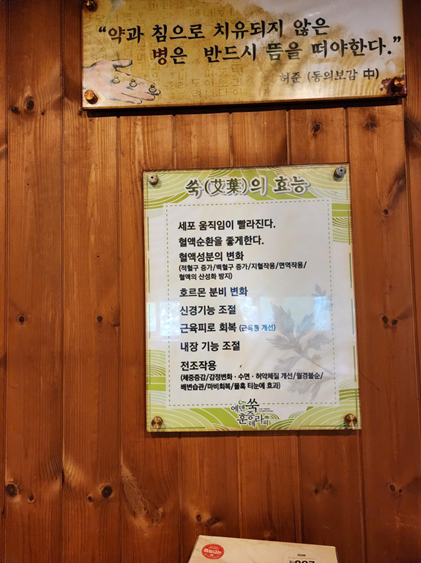 “약과 침으로 치유되지 않은
병은 반드시 뜸을 떠야한다.”
허준 (동의보감 中)
쑥(艾葉)의 효능
세포 움직임이 빨라진다.
혈액순환을 좋게한다.
혈액성분의 변화
(적혈구 증가/백혈구 증가/지혈작용/면역작용/
혈액의 산성화 방지)
호르몬 분비 변화
신경기능 조절
근육피로 회복 (근육통 개선)
내장 기능 조절
전조작용
(체중증감/감정변화·수면·허약체질 개선/월경불순/
배변습관/마비회복/물혹 티눈에 효과)
쑥